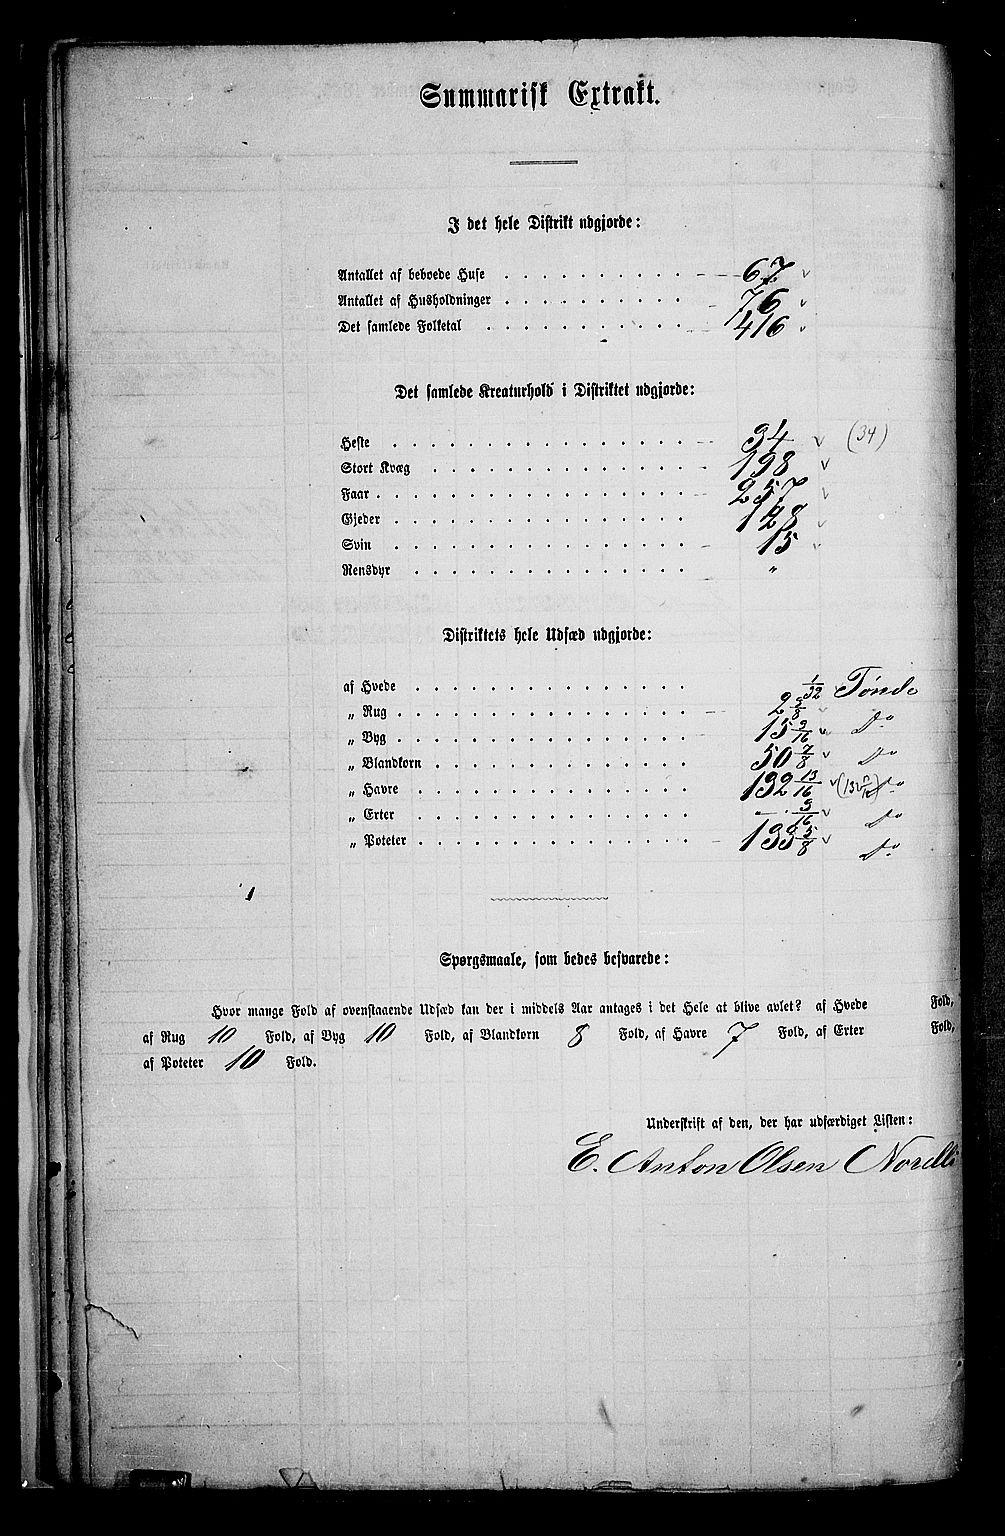 Summarisk Extrakt.
I det hele Distrikt udgjorde:
Antallet af beboede Huse . . . . . . . 67
Antallet af Husholdninger . . . . . . . 76
Det samlede Folketal . . . . . . . . 416
Det samlede Kreaturhold i Distriktet udgjorde:
Heste . . . . . . . . . . . . 34 (34)
Stort Kvæg . . . . . . . . . . 198
Faar . . . . . . . . . . . . . 257
Gjeder . . . . . . . . . . . . 128
Svin . . . . . . . . . . . . 15
Rensdyr . . . . . . . . . . . "
Distriktets hele Udsæd udgjorde:
af Hvede . . . . . . . . . . . 1/32 Tønde
„ Rug . . . . . . . . . . . . 2 5/8 Do
„ Byg . . . . . . . . . . . . 15 9/16 Do
„ Blandkorn . . . . . . . . . . 50 7/8 Do
„ Havre . . . . . . . . . . . 132 13/16 Do
„ Erter . . . . . . . . . . . " 3/16 Do
„ Poteter . . . . . . . . . . . 135 5/8 Do
Spørgsmaale, som bedes besvarede:
Hvor mange Fold af ovenstaaende Udsæd kan der i middels Aar antages i det Hele at blive avlet? af Hvede Fold,
af Rug 10 Fold, af Byg 10 Fold, af Blandkorn 8 Fold, af Havre 7 Fold, af Erter Fold,
af Poteter 10 Fold.
Underskrift af den, der har udfærdiget Listen:
E. Anton Olsen Norelli